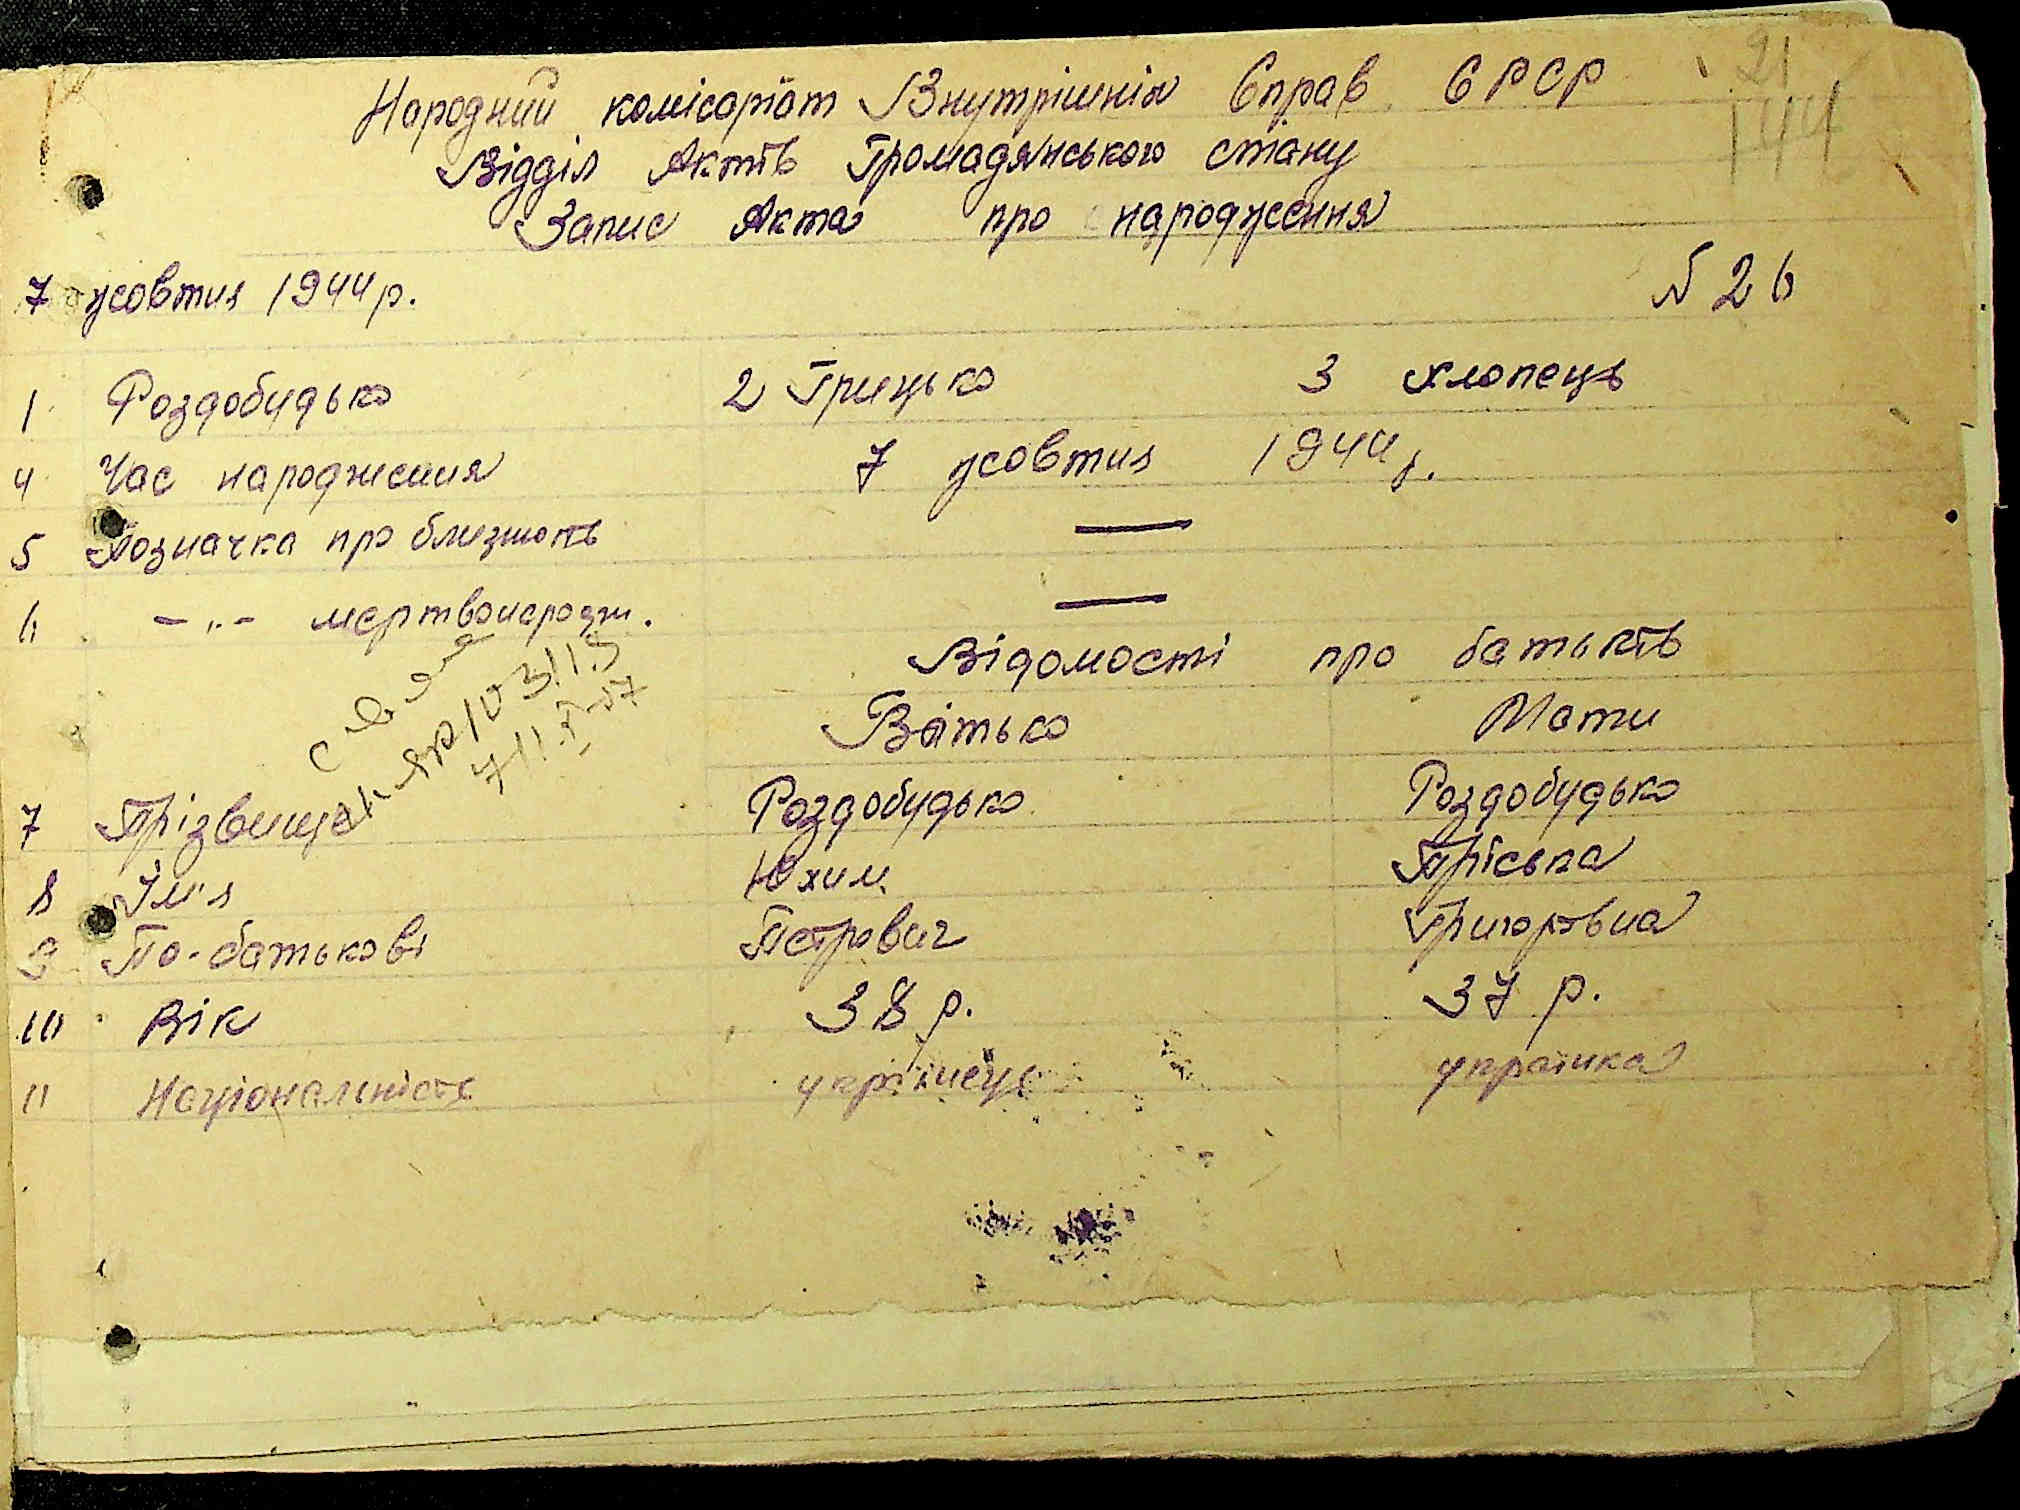 21
144
Народний комісаріат Внутрішніх Справ СРСР
Відділ Актів Громадянського стану
Запис Акта про народження
7 жовтня 1944 р.
N 26
1 Роздобудько 2 Грицько 3 хлопець
4 Час народження 7 жовтня 1944 р.
5 Позначка про близнють —
6 — „ — мертвонародж. —
Відомості про батьків
Батько Мати
7 Прізвище Роздобудько Роздобудько
8 Ім'я Юхим Пріська
9 По-батькові Петрович Григорівна
10 Вік 38 р. 37 р.
11 Національність українець українка